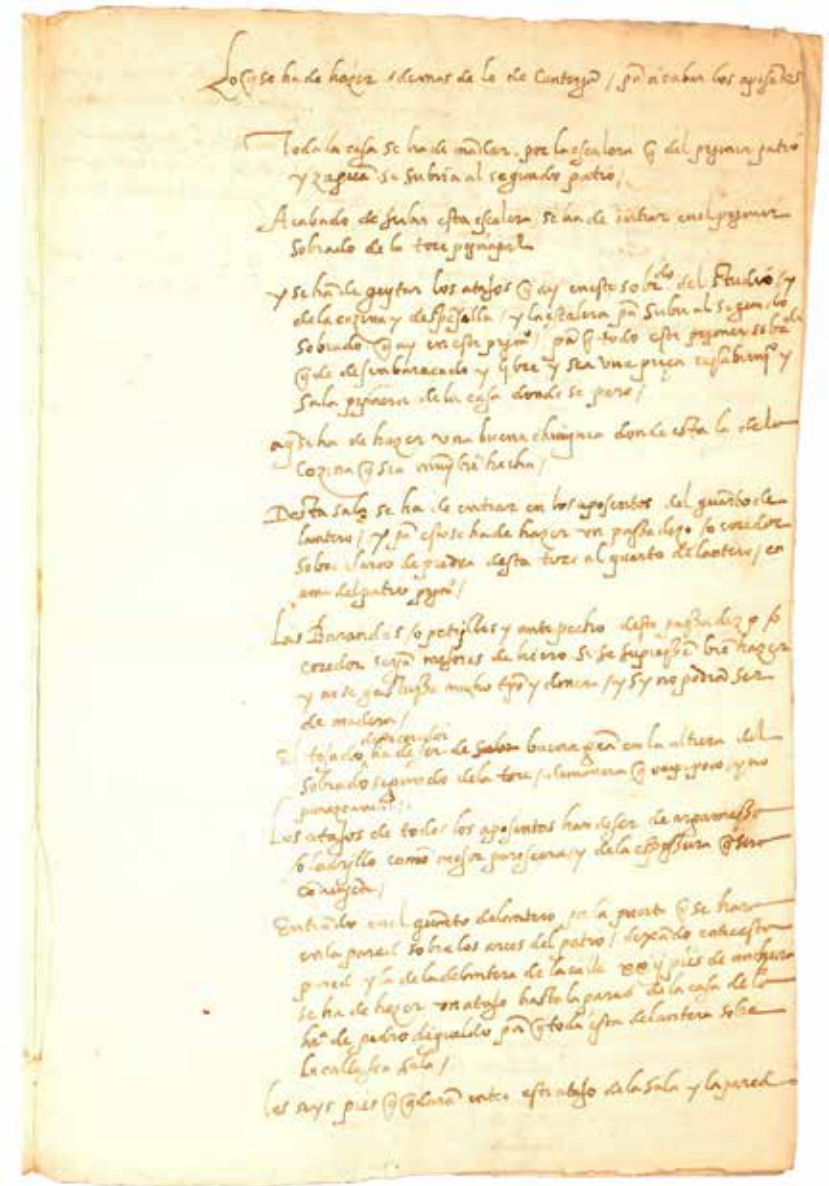 Lo q̃ se ha de hazer demas de lo de / pã acabar los aposẽtos
Toda la casa se ha de mãdar por la escalera q̃ del prymer patio
y zaguã se subria al segundo patio /
Acabado de subir esta escalera se ha de entrar en el prymer
Sobrado de la tore prynçipal
y se hã de quytar los atajos q̃ ay en este sobrado del Studio / y
de la cozina y despẽsilla / y la escalera pã Subir al segundo
Sobrado q̃ ay en este prymº / pã q̃ todo este prymer sobrado
q̃de desenbaraçado y lybre y sea una pieça y
Sala prymera de la casa donde se pare /
aqȳ se ha de hazer una buena chiminea donde esta la de la
Cozina q̃ sea muy biẽ hecha /
Desta sala se ha de entrar en los aposentos del quarto de
lantero / y pã eso se ha de hazer un passadizo / o coredor
Sobre de piedra desta tore al quarto delantero / en
çima del patio prymº /
Las Barandas / o petriles y antepecho deste passadizo / o
coredor seriã mejores de hiero si se supiessẽ biẽ hazer
y no se gastasse mucho tpõ y dinero / y Sy no podrã Ser
de madera /
deste coredor
El tejado ha de ser de buena en la altura del
Sobrado segundo de la tore / de manera q̃ poco / y no

Los atajos de todos los aposentos han de ser de argamassa
/o ladrillo como mejor paresciera / y de la espessura q̃ sera

Entrãdo en el quarto delantero por la puerta q̃ se hara
en la pared sobre los arcos del patio / dexãdo entre esta
pared y la de la delantera de la calle xx y pies de anchura
se ha de hazer un atajo hasta la pared de la casa de la
de pedro pã q̃ toda esta delantera sobre
la calle sea Sala /
los seys pies q̃ q̃darã entre este atajo de la Sala y la pared